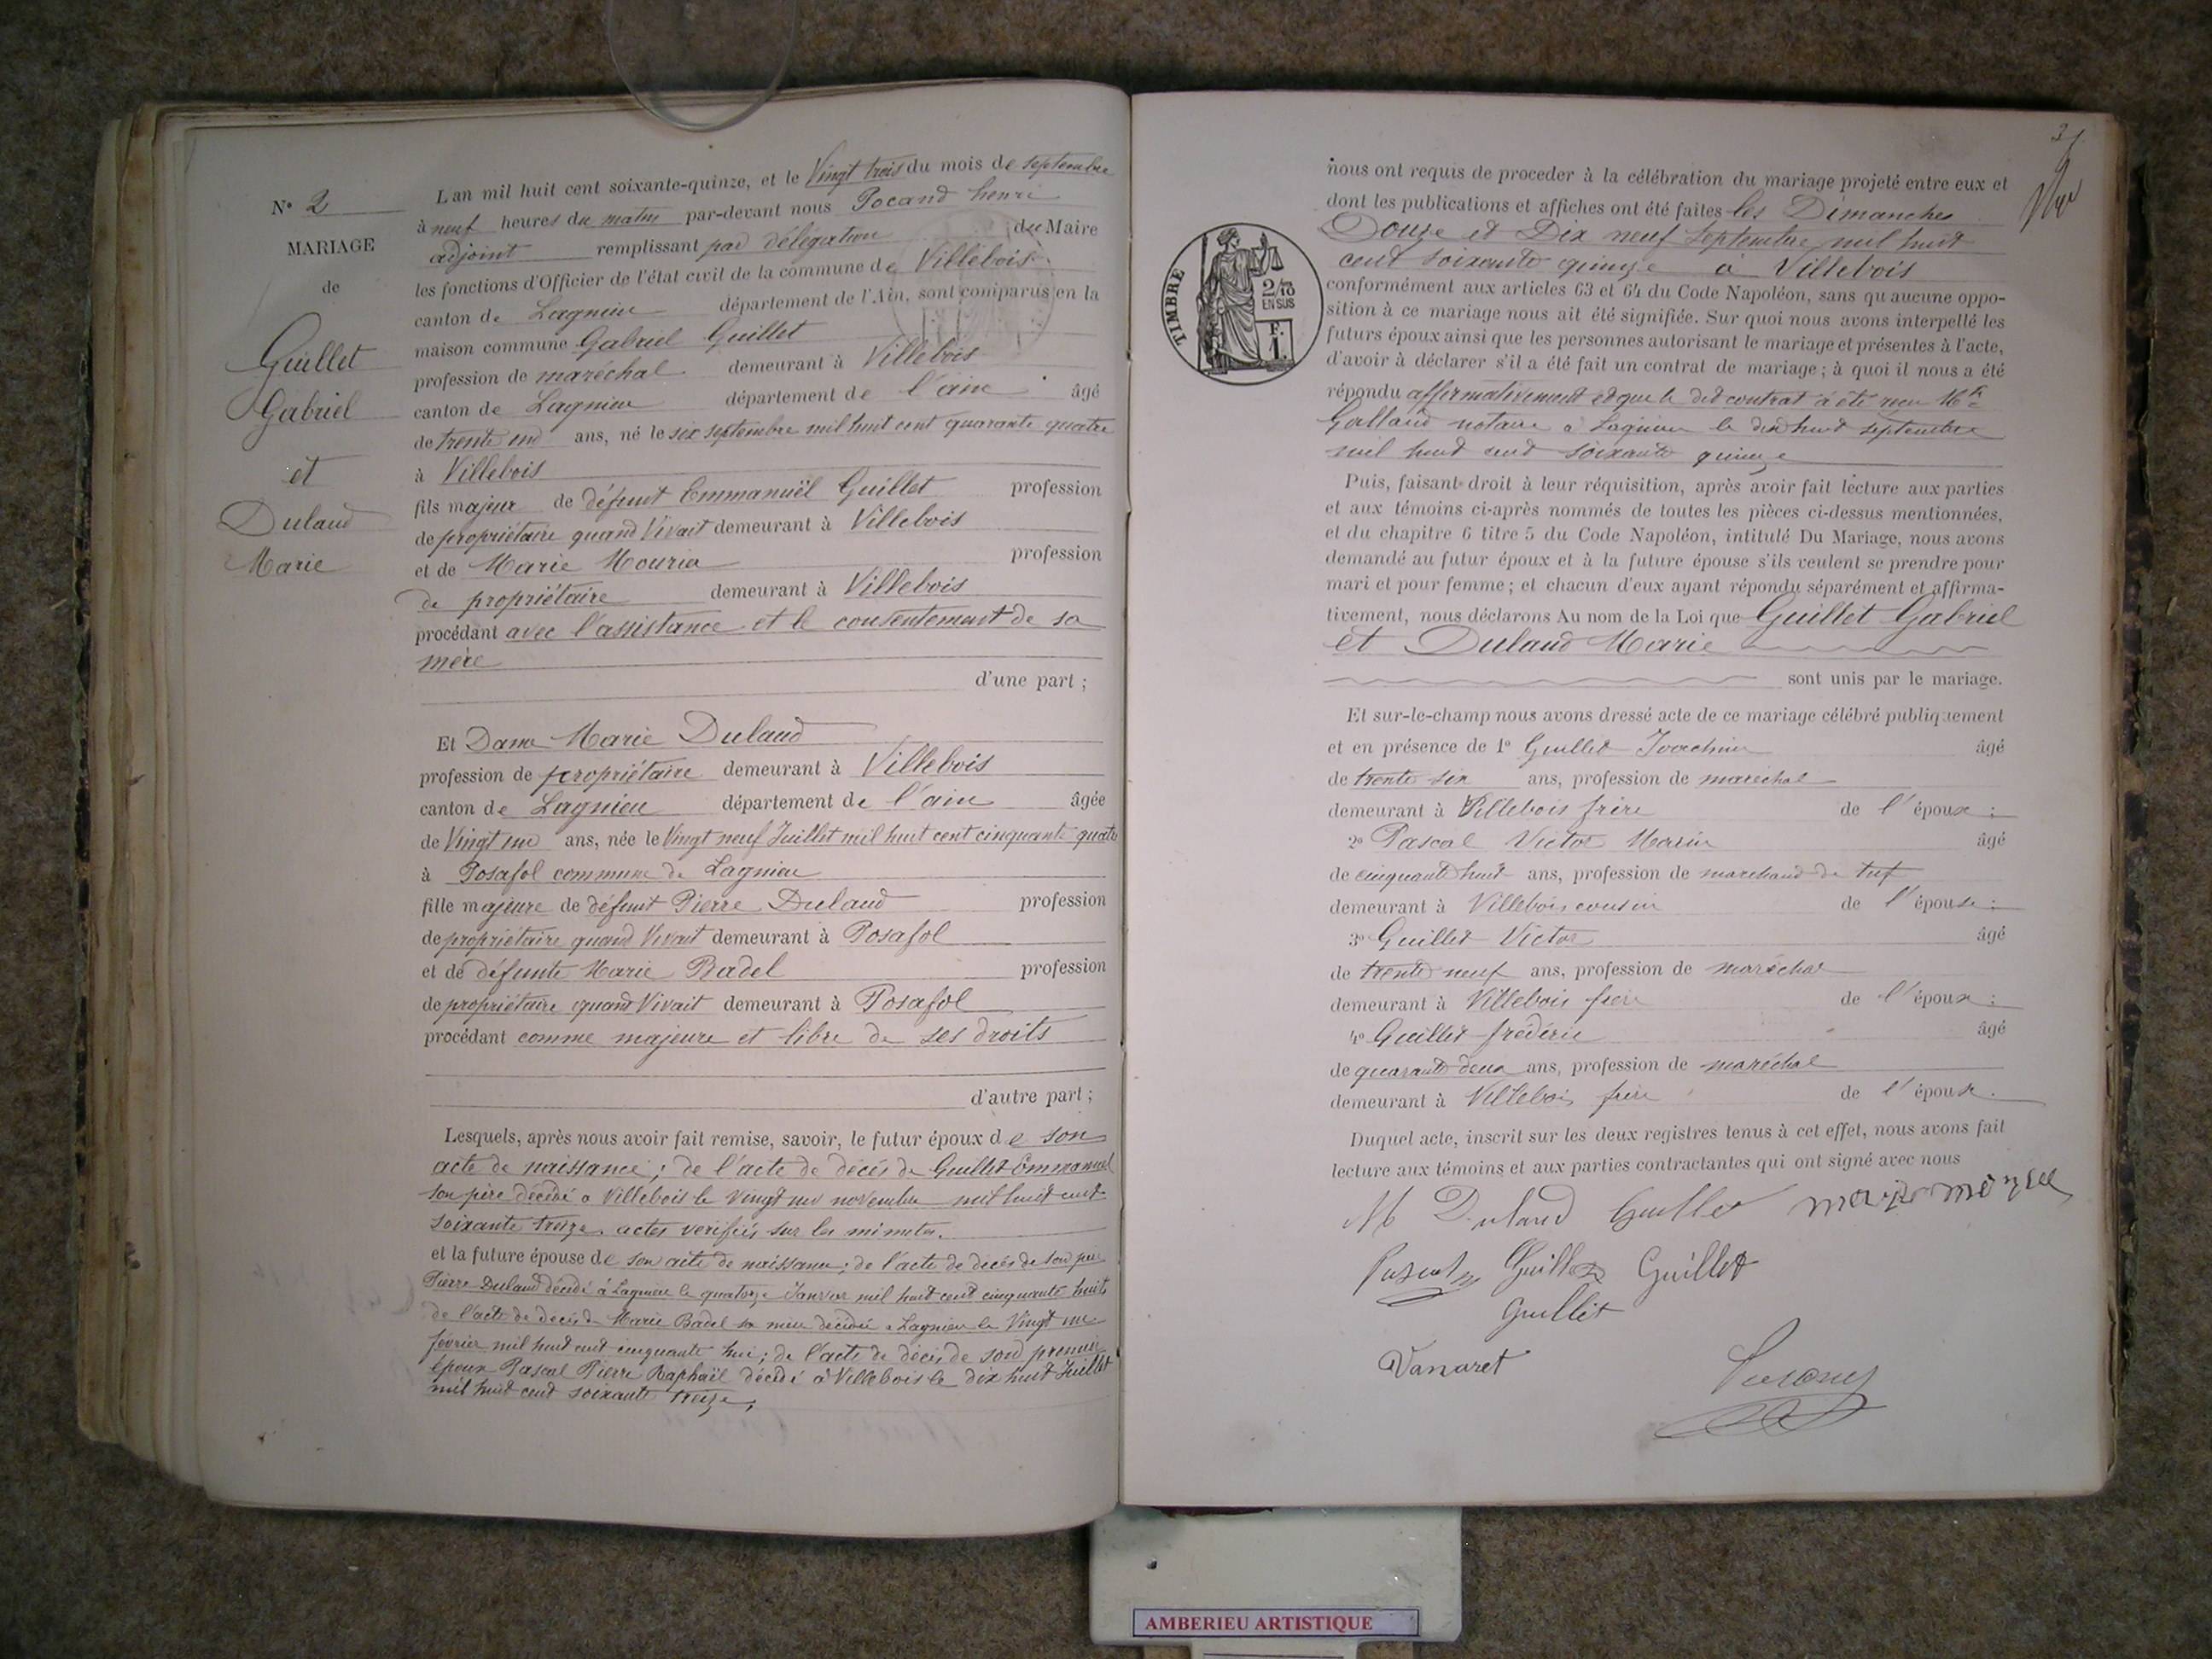 N° 2
MARIAGE
de
Guillet
Gabriel
et
Dulaud
Marie
L an mil huit cent soixante-quinze, et le Vingt trois du mois de septembre
à neuf heures du matin par-devant nous Pocand henri
adjoint remplissant par délégation du Maire
les fonctions d'Officier de l'état civil de la commune de Villebois
canton de Lagnieu département de l'Ain, sont comparus en la
maison commune Gabriel Guillet
profession de maréchal demeurant à Villebois
canton de Lagnieu département de l'ain âgé
de trente un ans, né le six septembre mil huit cent quarante quatre
à Villebois
fils majeur de défunt Emmanuël Guillet profession
de propriétaire quand Vivait demeurant à Villebois
et de Marie Mourier profession
de propriétaire demeurant à Villebois
procédant avec l'assistance et le consentement de sa
mère
d'une part ;
Et Dame Marie Dulaud
profession de propriétaire demeurant à Villebois
canton de Lagnieu département de l'ain âgée
de Vingt un ans, née le Vingt neuf Juillet mil huit cent cinquante quatre
à Posafol commune de Lagnieu
fille majeure de défunt Pierre Dulaud profession
de propriétaire quand Vivait demeurant à Posafol
et de défunte Marie Badel profession
de propriétaire quand Vivait demeurant à Posafol
procédant comme majeure et libre de ses droits
d'autre part ;
Lesquels, après nous avoir fait remise, savoir, le futur époux de son
acte de naissance ; de l'acte de décès de Guillet Emmanuel
son père décédé a Villebois le Vingt un novembre mil huit cent
soixante treize. actes verifiés sur les minutes.
et la future épouse de son acte de naissance ; de l'acte de decés de son père
Pierre Dulaud décédé à Lagnieu le quatorze Janvier mil huit cent cinquante huit
de l'acte de decés de Marie Badel sa mère decidée a Lagnieu le Vingt un
février mil huit cent cinquante huit ; de l'acte de décès de son premier
époux Pascal Pierre Raphaël décédé à Villebois le dix huit Juillet
mil huit cent soixante treize,
31
nous ont requis de proceder à la célébration du mariage projeté entre eux et
dont les publications et affiches ont été faites les Dimanches
Douze et Dix neuf Septembre mil huit
cent soixante quinze à Villebois
TIMBRE
2/10
EN SUS
F.
1.
conformément aux articles 63 et 64 du Code Napoléon, sans qu aucune oppo-
sition à ce mariage nous ait été signifiée. Sur quoi nous avons interpellé les
futurs époux ainsi que les personnes autorisant le mariage et présentes à l'acte,
d'avoir à déclarer s'il a été fait un contrat de mariage ; à quoi il nous a été
répondu affirmativement et que le dit contrat a été reçu Mtre
Galland notaire à Lagnieu le dix huit septembre
mil huit cent soixante quinze
Puis, faisant droit à leur réquisition, après avoir fait lecture aux parties
et aux témoins ci-après nommés de toutes les pièces ci-dessus mentionnées,
et du chapitre 6 titre 5 du Code Napoléon, intitulé Du Mariage, nous avons
demandé au futur époux et à la future épouse s'ils veulent se prendre pour
mari et pour femme ; et chacun d'eux ayant répondu séparément et affirma-
tivement, nous déclarons Au nom de la Loi que Guillet Gabriel
et Dulaud Marie
sont unis par le mariage.
Et sur-le-champ nous avons dressé acte de ce mariage célébré publiquement
et en présence de 1° Guillet Joachim âgé
de trente six ans, profession de maréchal
demeurant à Villebois frère de l'époux ;
2° Pascal Victor Marin âgé
de cinquante huit ans, profession de marchand de tuf
demeurant à Villebois cousin de l'épouse ;
3° Guillet Victor âgé
de trente neuf ans, profession de maréchal
demeurant à Villebois frère de l'époux ;
4° Guillet frédéric âgé
de quarante deux ans, profession de maréchal
demeurant à Villebois frère de l'époux.
Duquel acte, inscrit sur les deux registres tenus à cet effet, nous avons fait
lecture aux témoins et aux parties contractantes qui ont signé avec nous
M Dulaud Guillet
Pascal Guillet Guillet
Guillet
Vanaret
AMBERIEU ARTISTIQUE